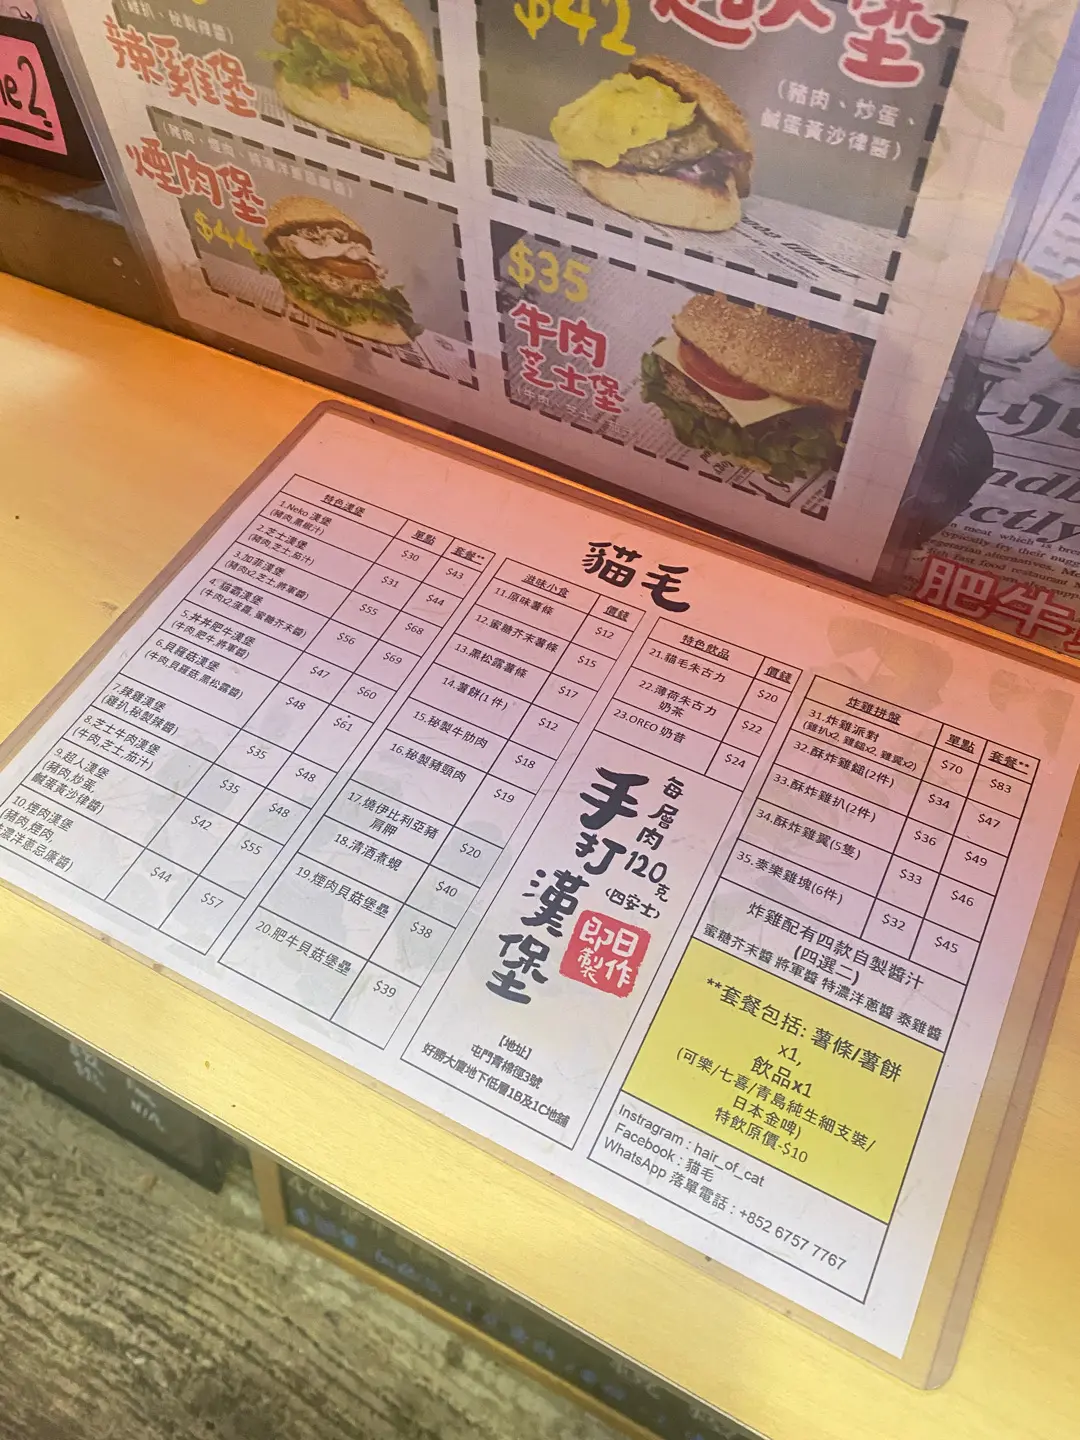 le2
(雞扒、秘製辣醬)
辣雞堡
$42
超人堡
(豬肉、炒蛋、
鹹蛋黃沙律醬)
煙肉堡
$44
$35
牛肉
芝士堡
(牛肉、芝士
肥牛
貓毛
特色漢堡 單點 套餐**
1.Neko 漢堡
(豬肉,黑椒汁) $30 $43
2.芝士漢堡
(豬肉,芝士,茄汁) $31 $44
3.加菲漢堡
(豬肉x2,芝士,將軍醬) $55 $68
4.貓霸漢堡
(牛肉x2,菠蘿,蜜糖芥末醬) $56 $69
5.丼丼肥牛漢堡
(牛肉,肥牛,將軍醬) $47 $60
6.貝羅菇漢堡
(牛肉,貝羅菇,黑松露醬) $48 $61
7.辣雞漢堡
(雞扒,秘製辣醬) $35 $48
8.芝士牛肉漢堡
(牛肉,芝士,茄汁) $35 $48
9.超人漢堡
(豬肉,炒蛋,
鹹蛋黃沙律醬) $42 $55
10.煙肉漢堡
(豬肉,煙肉,
濃洋蔥忌廉醬) $44 $57
滋味小食 價錢
11.原味薯條 $12
12.蜜糖芥末薯條 $15
13.黑松露薯條 $17
14.薯餅(1件) $12
15.秘製牛肋肉 $18
16.秘製豬頸肉 $19
17.燒伊比利亞豬
肩胛 $20
18.清酒煮蜆 $40
19.煙肉貝菇堡壘 $38
20.肥牛貝菇堡壘 $39
特色飲品 價錢
21.貓毛朱古力 $20
22.薄荷朱古力
奶茶 $22
23.OREO 奶昔 $24
每層肉120克
(四安士)
手打漢堡
即日
製作
【地址】
屯門青棉徑3號
好勝大廈地下低層1B及1C地舖
炸雞拼盤 單點 套餐**
31.炸雞派對
(雞扒x2, 雞鎚x2, 雞翼x2) $70 $83
32.酥炸雞鎚(2件) $34 $47
33.酥炸雞扒(2件) $36 $49
34.酥炸雞翼(5隻) $33 $46
35.麥樂雞塊(6件) $32 $45
炸雞配有四款自製醬汁
(四選二)
蜜糖芥末醬 將軍醬 特濃洋蔥醬 泰雞醬
**套餐包括: 薯條/薯餅
x1,
飲品x1
(可樂/七喜/青島純生細支裝/
日本金啤)
特飲原價-$10
Instragram : hair_of_cat
Facebook : 貓毛
WhatsApp 落單電話 : +852 6757 7767